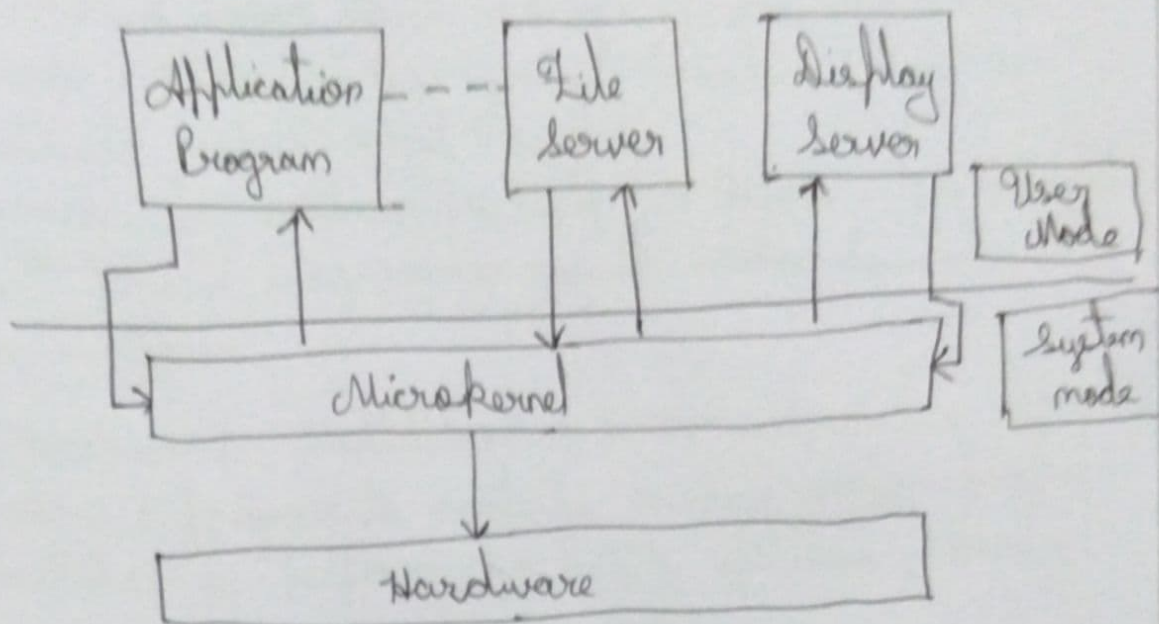 Application
Program
File
Server
Display
Server
User
Mode
System
mode
Microkernel
Hardware